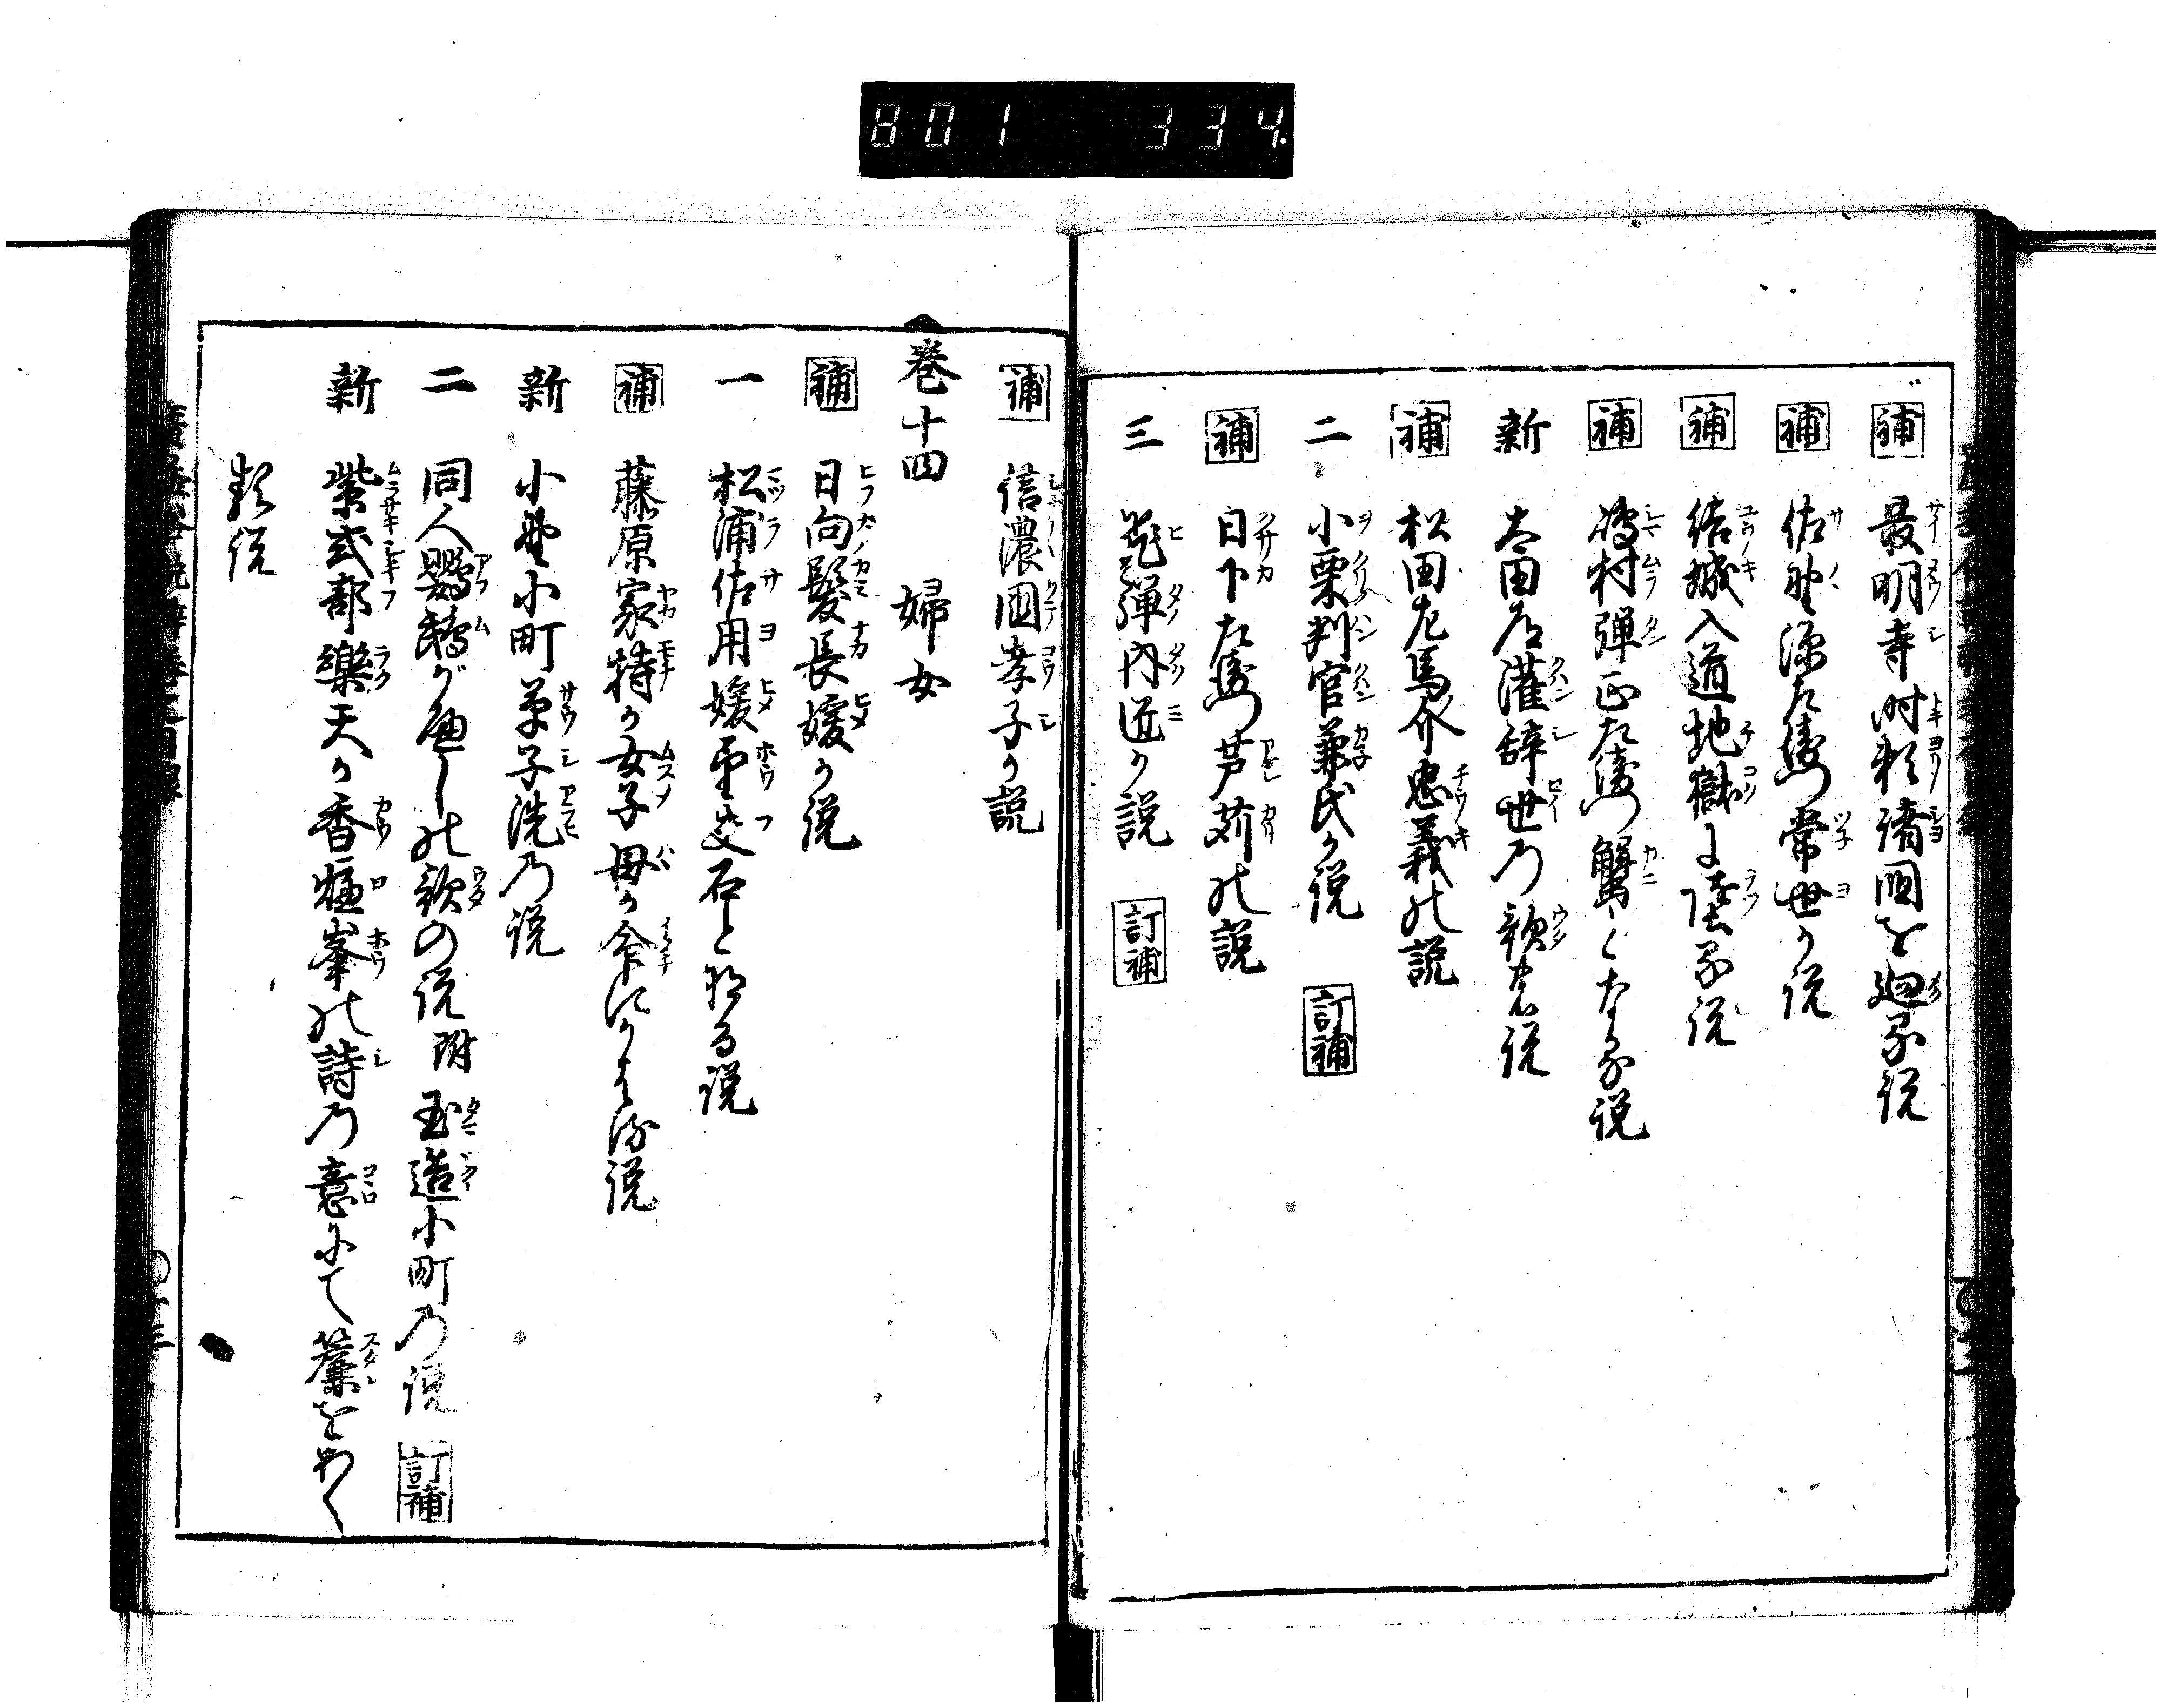 801 334
補 最明寺時頼諸國を廻る説
補 佐野源左衛門常世が説
補 結城入道地獄に墮る説
補 嶋村弾正左衛門蟹となる説
新 太田道灌辞世の歌の説
補 松田左馬介忠義の説
二 小栗判官兼氏が説 訂補
補 日下左衛門芦苅の説
三 飛彈内匠が説 訂補
補 信濃國孝子が説
巻十四 婦女
補 日向髪長媛が説
一 松浦佐用媛望夫石と化る説
補 藤原家持が女子母が命にかはる説
新 小野小町草子洗の説
二 同人鸚鵡がへしの歌の説 附 玉造小町の説 訂補
新 紫式部樂天が香爐峯の詩の意にて簾をあぐ
類説